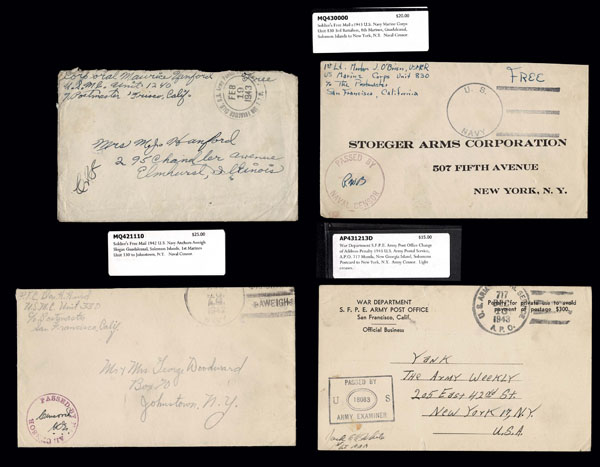 MQ430000 $20.00
Soldier's Free Mail c1943 U.S. Navy Marine Corps
Unit 830 3rd Battalion, 8th Marines, Guadalcanal,
Solomon Islands to New York, N.Y. Naval Censor.
Corporal Maurice Hanford
U.S.M.C. Unit 1240
% Postmaster Frisco, Calif.
Free
FEB
10
1943
Mrs Hanford
295 Chandler avenue
Elmhurst, Illinois
1st Lt. J. O'Brien, USMCR
US Marine Corps Unit 830
% The Postmaster
San Francisco, California
FREE
U. S.
NAVY
STOEGER ARMS CORPORATION
507 FIFTH AVENUE
NEW YORK, N. Y.
PASSED BY
NAVAL CENSOR
MQ421110 $25.00
Soldier's Free Mail 1942 U.S. Navy Anchors Aweigh
Slogan Guadalcanal, Solomon Islands. 1st Marines
Unit 330 to Johnstown, N.Y. Naval Censor.
AP431213D $15.00
War Department S.F.P.E. Army Post Office Change
of Address Penalty 1943 U.S. Army Postal Service,
A.P.O. 717 Munda, New Georgia Island, Solomons
Postcard to New York, N.Y. Army Censor. Light
creases.
U.S.M.C. Unit 330
% Postmaster
San Francisco, Calif.
AWEIGH
Mr & Mrs George Woodward
Box
Johnstown, N.Y.
PASSED BY
WAR DEPARTMENT
S. F. P. E. ARMY POST OFFICE
San Francisco, Calif.
Official Business
U.S. ARMY POSTAL SERVICE
717
1943
A. P. O.
Penalty for private use to avoid
payment of postage $300.
YANK
THE ARMY WEEKLY
205 EAST 42nd ST.
NEW YORK 17, N.Y.
U.S.A.
PASSED BY
U 16083 S
ARMY EXAMINER